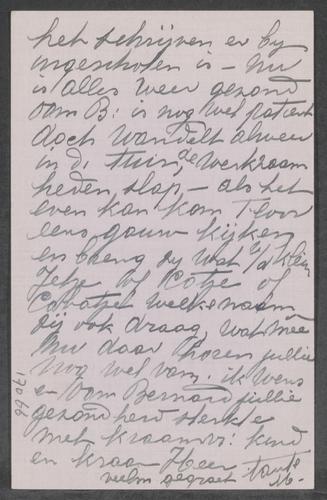 het schrijven er by
ingeschoten is – nu
is alles weer gezond
oom B: is nog wel patient
doch wandelt alweer
in d. tuin, ze werkzaam
heden, slap, – als het
even kan kom ik voor
eens gauw kijken
en breng jy wat v/d klein
Jetje of Cotje of
welke naam
zij ook draag, wat mee
Nu daar hooren jullie
nog wel van. ik wens
e– oom Bernard jullie
gezondheid sterkte
met kraamvr: kind
en Heer
veelm gegroet tante
17066